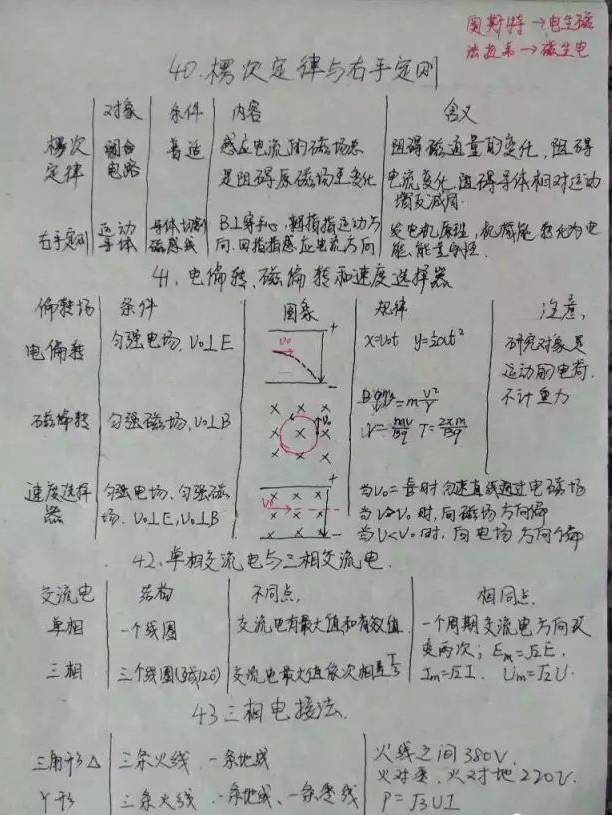 奥斯特→电生磁
法拉弟→磁生电
40.楞次定律与右手定则
对象 条件 内容 含义
楞次定律 闭合电路 普适 感应电流的磁场总是阻碍原磁场变化 阻碍磁通量的变化、阻碍电流变化、阻碍导体相对运动 增反减同
右手定则 运动导体 导体切割磁感线 B⊥穿手心,拇指指运动方向.四指指感应电流方向 发电机原理,机械能转化为电能.能量守恒.
41.电偏转、磁偏转和速度选择器
偏转场 条件 图象 规律 注意,
电偏转 匀强电场、V₀⊥E V₀ + − x=V₀t y=½at² 研究对象是运动的电荷.不计重力
磁偏转 匀强磁场,V₀⊥B × × × × × × × × × V₀ =m V²/r
r=mv/Bq T=2πm/Bq
速度选择器 匀强电场、匀强磁场.V₀⊥E,V₀⊥B × × × + V₀ × × × − 当V₀= 时匀速直线通过电磁场
当V>V₀时,向磁场方向偏
当V<V₀时,向电场方向偏
42.单相交流电与三相交流电.
交流电 结构 不同点, 相同点.
单相 一个线圈 交流电有最大值和有效值 一个周期交流电方向改变两次;Em=√2E.
三相 三个线圈(互成120) 交流电最大值依次相差T/3 Im=√2I. Um=√2U.
43三相电接法.
三角形△ 三条火线 一条地线 火线之间380V.
火对零、火对地220V.
Y形 三条火线 一条地线、一条零线 P=√3UI